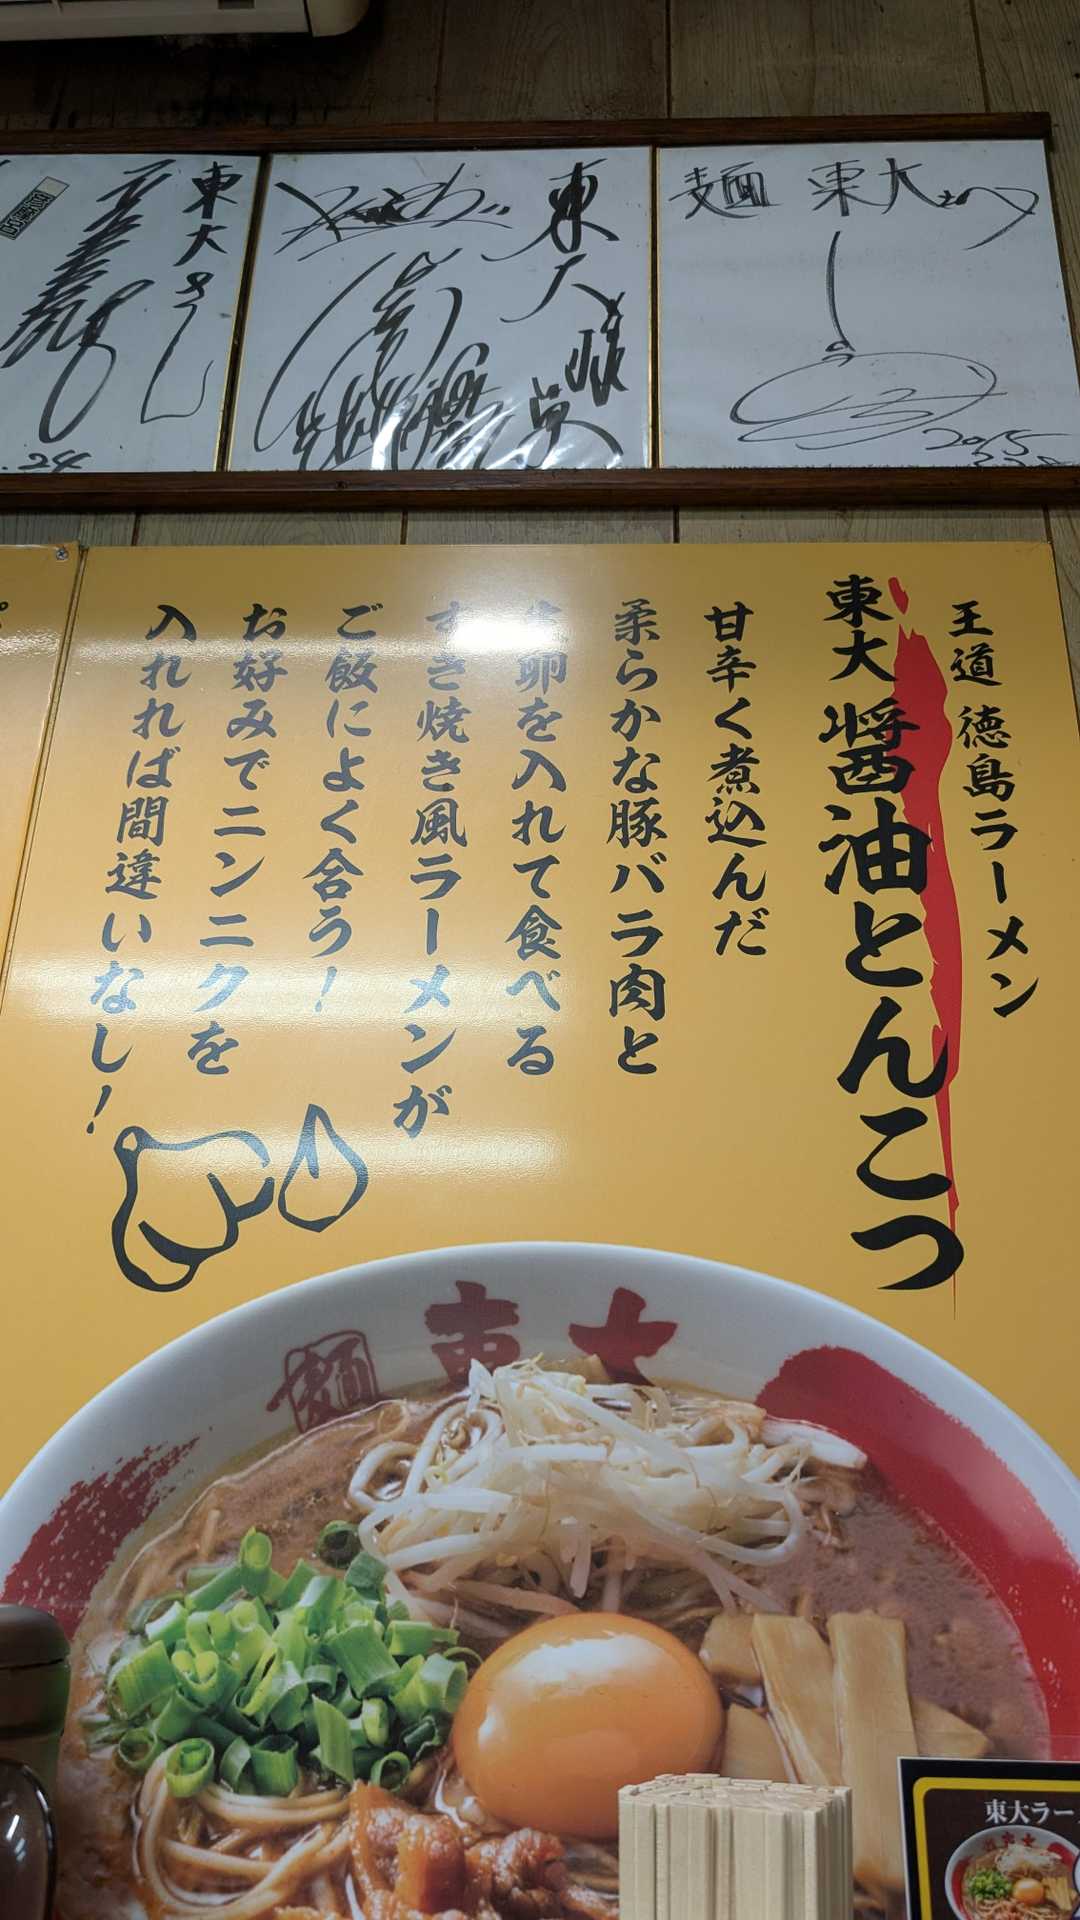 麺 東大さん江
2015
東大
東大さん
.24
王道 徳島ラーメン
東大 醤油とんこつ
甘辛く煮込んだ
柔らかな豚バラ肉と
生卵を入れて食べる
すき焼き風ラーメンが
ご飯によく合う!
お好みでニンニクを
入れれば間違いなし!
麺 東大
東大ラー